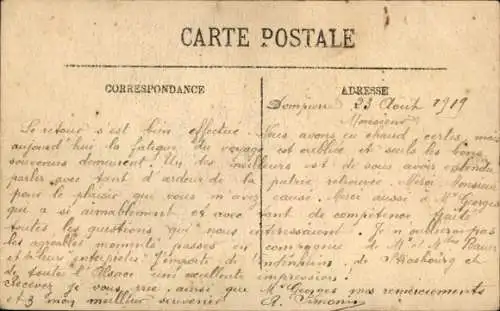 CARTE POSTALE
CORRESPONDANCE
ADRESSE
Dompierre 23 Août 1919
Monsieur
Le retour s'est bien effectué. Nous avons eu chaud, certes, mais
aujourd'hui la fatigue du voyage est oubliée et seuls les bons
souvenirs demeurent! Un des meilleurs est de vous avoir entendu
parler avec tant d'ardeur de la patrie retrouvée. Merci Monsieur
pour le plaisir que vous m'avez causé. Merci aussi à Mr Georges
qui a si aimablement et avec tant de compétence traité
toutes les questions qui nous intéressaient. Je n'oublierai pas
les agréables moments passés en compagnie de Mr
et leurs interprètes J'emporte de de Strasbourg et
de toute l'Alsace une excellente impression!
Recevez je vous prie, ainsi que Mr Georges mes remerciements
et mon meilleur souvenir